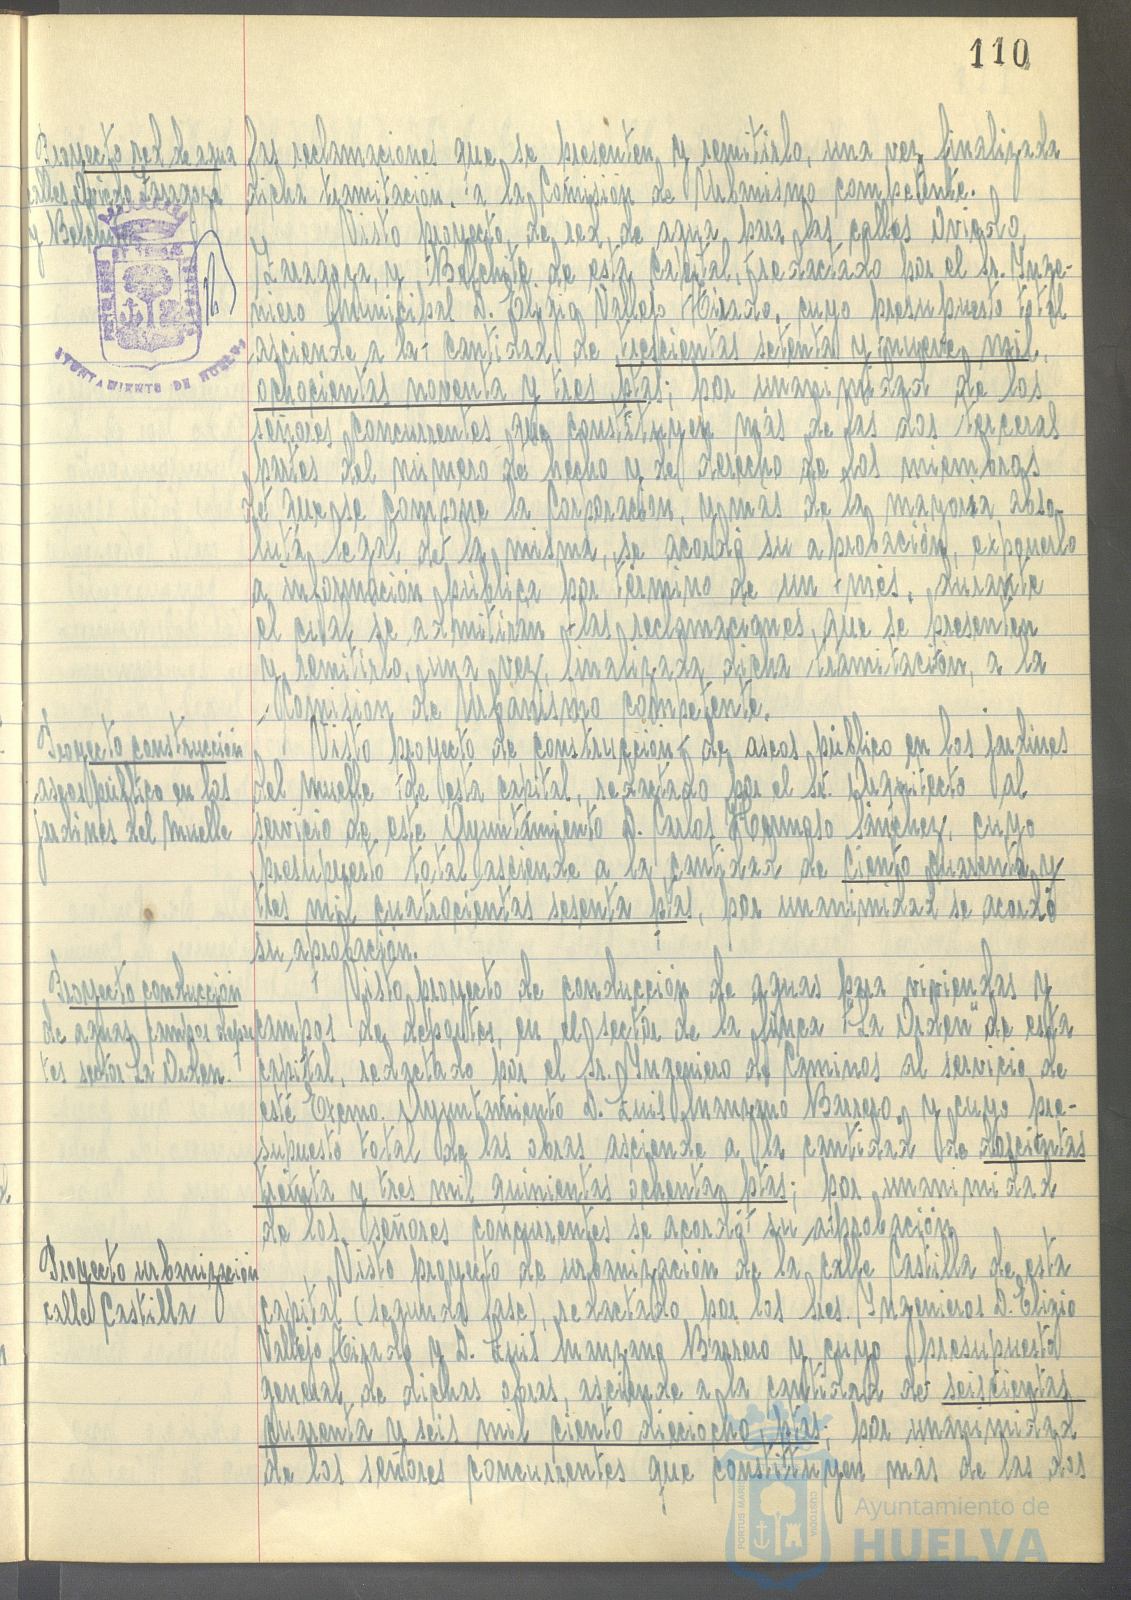 110
Proyecto red de agua
calles Oviedo Zaragoza
y Belchite
AYUNTAMIENTO DE HUELVA
las reclamaciones que se presenten y remitirlo, una vez finalizada
dicha tramitación, a la Comisión de Urbanismo competente.
Visto proyecto de red de agua para las calles Oviedo,
Zaragoza, y Belchite de esta Capital, redactado por el Sr. Inge-
niero Municipal D. Eligio Vallejo Hizado, cuyo presupuesto total
asciende a la cantidad de trescientas setenta y nueve mil,
ochocientas noventa y tres ptas; por unanimidad de los
señores concurrentes que constituyen más de las dos terceras
partes del número de hecho y de derecho de los miembros
de que se compone la Corporación, y más de la mayoría abso-
luta legal de la misma, se acordó su aprobación, exponerlo
a información pública por término de un mes, durante
el cual se admitirán las reclamaciones que se presenten
y remitirlo, una vez finalizada dicha tramitación, a la
Comisión de Urbanismo competente.
Proyecto construcción
aseos público en los
jardines del Muelle
Visto proyecto de construcción de aseos público en los jardines
del Muelle de esta capital, redactado por el Sr. Arquitecto al
servicio de este Ayuntamiento D. Carlos Hermoso Sánchez, cuyo
presupuesto total asciende a la cantidad de Ciento cuarenta y
tres mil cuatrocientas sesenta ptas, por unanimidad se acordó
su aprobación.
Proyecto conducción
de aguas campos depor
tes sector La Orden.
Visto proyecto de conducción de aguas para viviendas y
campos de deportes, en el sector de la finca "La Orden" de esta
capital, redactado por el Sr. Ingeniero de Caminos al servicio de
este Excmo. Ayuntamiento D. Luis Manzano Barrero, y cuyo pre-
supuesto total de las obras asciende a la cantidad de doscientas
treinta y tres mil quinientas ochenta ptas; por unanimidad
de los señores concurrentes se acordó su aprobación
Proyecto urbanización
calle Castilla
Visto proyecto de urbanización de la calle Castilla de esta
capital (segunda fase), redactado por los Sres. Ingenieros D. Eligio
Vallejo Hizado y D. Luis Manzano Barrero y cuyo presupuesto
general de dichas obras, asciende a la cantidad de seiscientas
cuarenta y seis mil ciento dieciocho ptas; por unanimidad
de los señores concurrentes que constituyen más de las dos
PORTUS MARIS
CUSTODIA
Ayuntamiento de
HUELVA